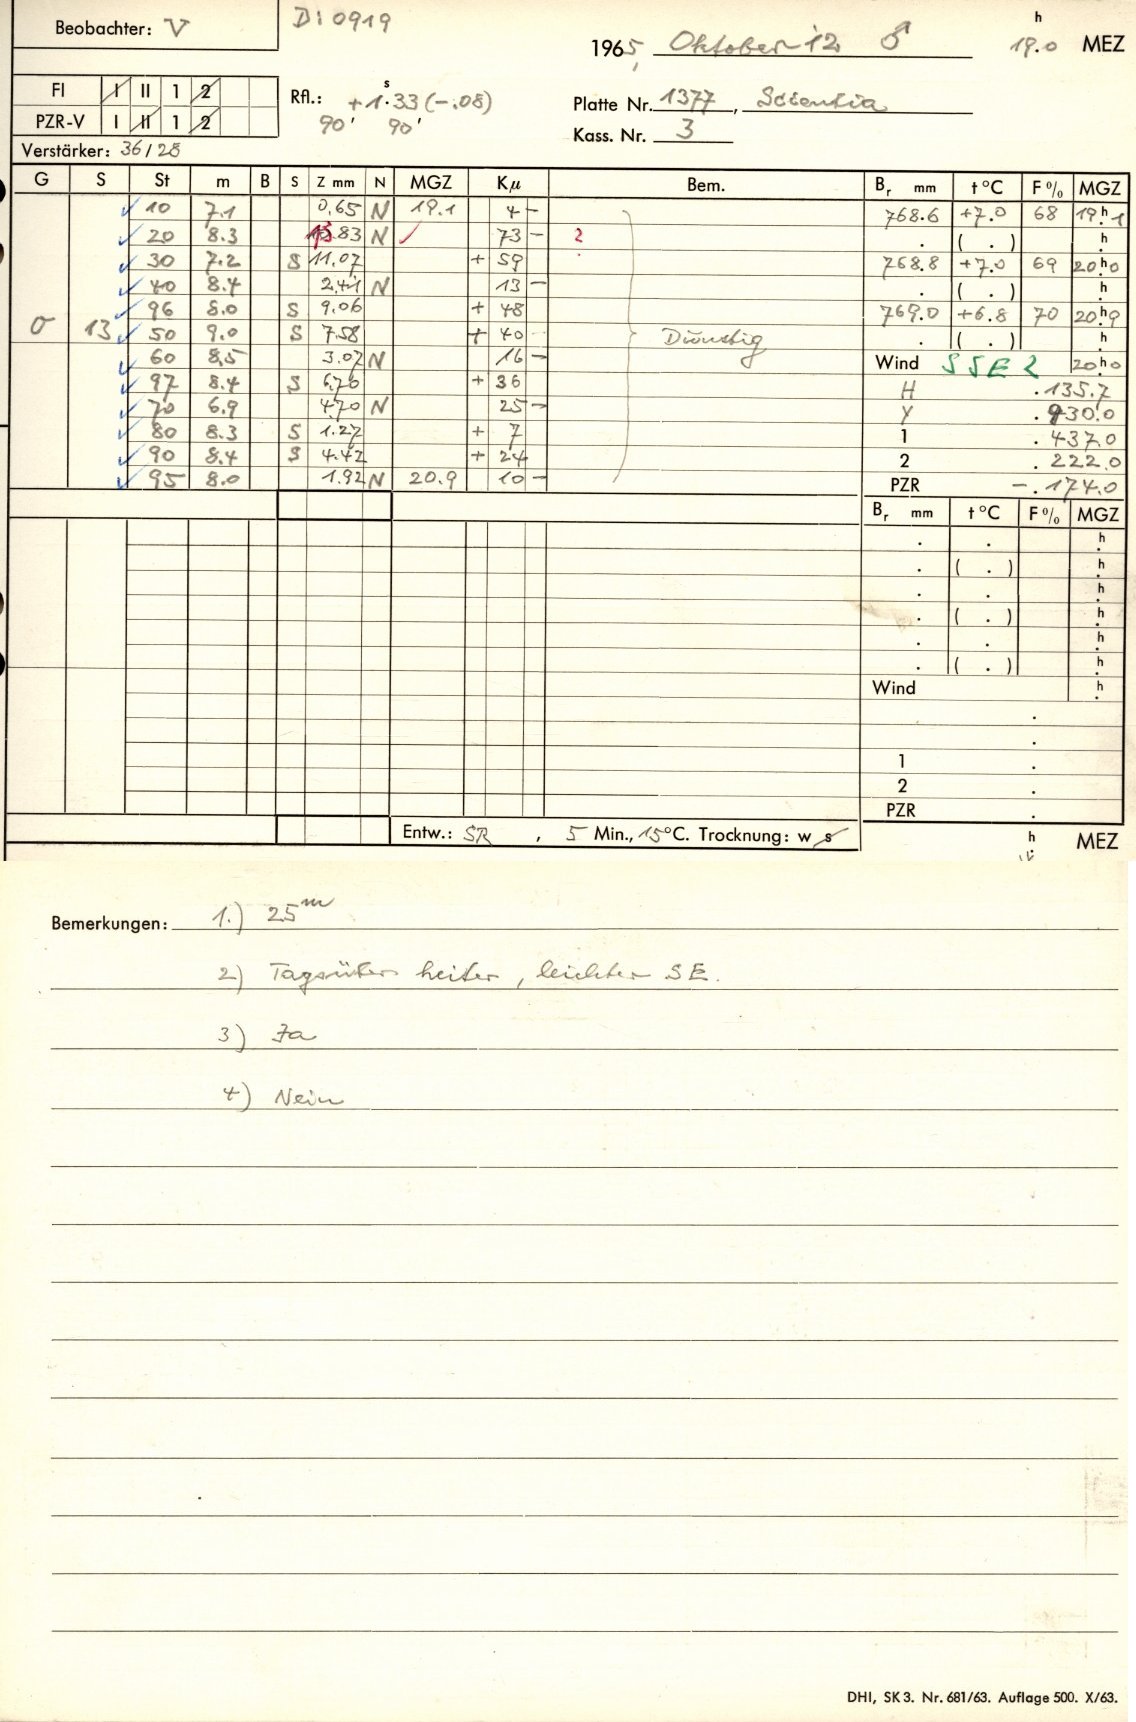 Beobachter: V
Di 0919
1965, Oktober 12 ♂ 19.0 h MEZ
FI I II 1 2
PZR-V I II 1 2
Rfl.: +1.s33 (-.08)
90' 90'
Platte Nr. 1377, Scientia
Kass. Nr. 3
Verstärker: 36/28
G S St m B S Z mm N MGZ Kμ Bem.
10 7.1 0.65 N 19.1 4 -
20 8.3 .83 N 73 - ?
30 7.2 S 11.07 + 59
40 8.4 2.41 N 13 -
96 8.0 S 9.06 + 48
σ 13 50 9.0 S 7.58 + 40 Dunstig
60 8.5 3.07 N 16 -
97 8.4 S 6.76 + 36
70 6.9 4.70 N 25 -
80 8.3 S 1.27 + 7
90 8.4 S 4.42 + 24
95 8.0 1.92 N 20.9 10 -
Br mm t °C F % MGZ
768.6 +7.0 68 19h.1
. ( . ) h.
768.8 +7.0 69 20h.0
. ( . ) h.
769.0 +6.8 70 20h.9
. ( . ) h.
Wind SSE 2 20h.0
H .135.7
Y .930.0
1 .437.0
2 .222.0
PZR -.174.0
Br mm t °C F % MGZ
. . h.
. ( . ) h.
. . h.
. ( . ) h.
. . h.
. ( . ) h.
Wind h.
.
.
1 .
2 .
PZR .
Entw.: SR, 5 Min., 15°C. Trocknung: w s
h. MEZ
Bemerkungen: 1.) 25m
2) Tagsüber heiter, leichter SE.
3) Ja
4) Nein
DHI, SK 3. Nr. 681/63. Auflage 500. X/63.